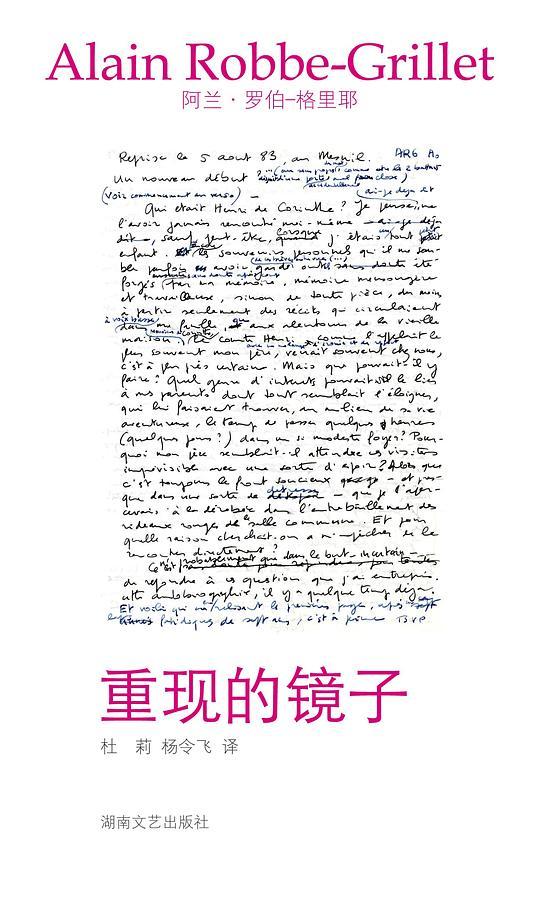 Alain Robbe-Grillet
阿兰·罗伯–格里耶
Reprise le 5 aout 83, au Mesnil.
Un nouveau début ?
(Voir commencement au verso) —
Qui était Henri de Corinthe ? Je pense
l'avoir jamais rencontré moi-même
sauf, peut-être, j'étais tout
enfant. les souvenirs personnels qu'il me sem-
ble parfois avoir gardé
forgés par ma mémoire, mémoire mensongère
et travailleuse, sinon de toute pièce, du moins
à partir seulement des récits qui circulaient
à voix basse
ma famille aux alentours de la vieille
maison. comte Henri, comme l'appelait le
plus souvent mon père, venait souvent chez nous,
c'est à peu près certain. Mais que pouvait-il y
faire ? Quel genre d'interets pouvait le lier
à mes parents, dont tout semblait l'éloigner,
qui lui faisaient trouver, au milieu de sa vie
aventureuse, le temps de passer quelques heures
(quelques jours ?) dans un si modeste foyer ? Pour-
quoi mon père semblait-il attendre ces visites
avec une sorte d'espoir ? Alors que
c'est toujours le front soucieux
que dans une sorte de détresse — que je l'aper-
cevais à la dérobée dans l'entrebâillement des
rideaux rouges de la salle commune. Et pour
quelle raison cherchait-on à m'empêcher de le
rencontrer directement ?
C'est probablement que dans le but incertain —
de répondre à ces question que j'ai entrepris,
cette autobiographie, il y a quelque temp déjà.
Et voilà qu'en relisant les premières page, après
de sept ans, c'est à peine TSVP
重现的镜子
杜 莉 杨令飞 译
湖南文艺出版社